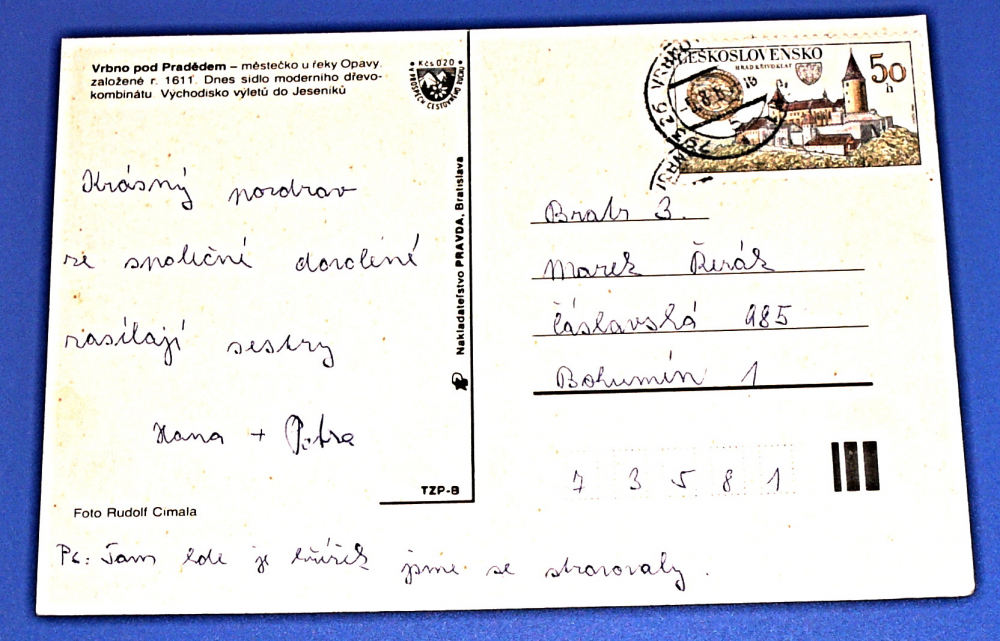 Vrbno pod Pradědem – městečko u řeky Opavy,
založené r. 1611. Dnes sídlo moderního dřevo-
kombinátu. Východisko výletů do Jeseníků
Kčs 0,20
Krásný pozdrav
ze společné dovolené
zasílají sestry
Hana + Petra
TZP-8
Foto Rudolf Cimala
Ps: Tam kde je křížek jsme se stravovaly.
Nakladateľstvo PRAVDA, Bratislava
ČESKOSLOVENSKO
HRAD KŘIVOKLÁT
50
h
793 26 VRBNO
Bratr 3.
Marek Řezák
Čáslavská 985
Bohumín 1
7 3 5 8 1